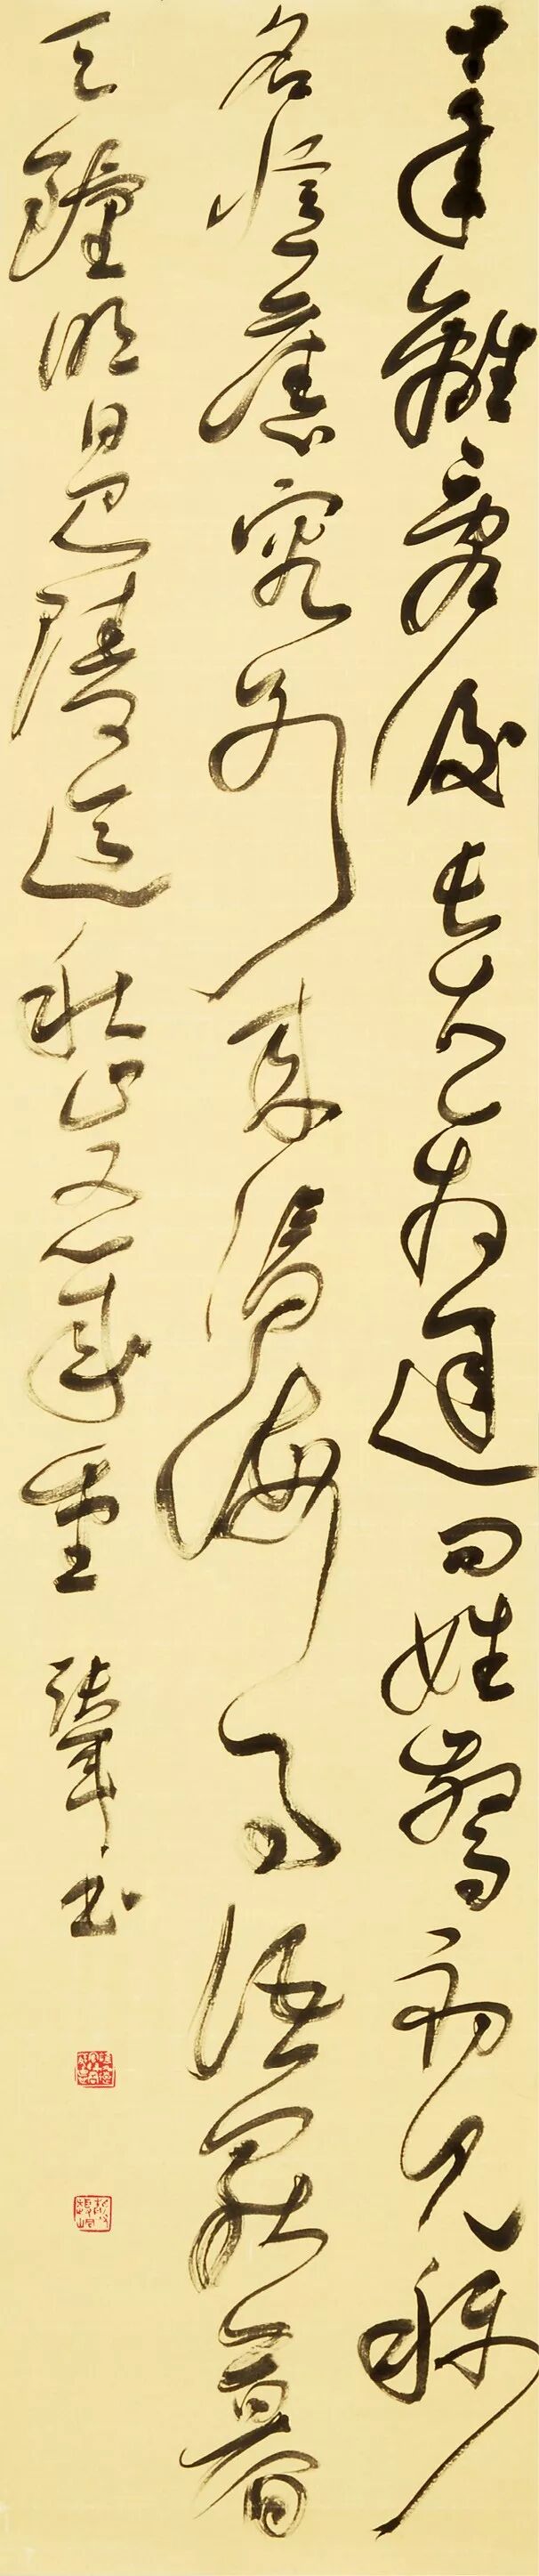 十年離亂後長大一相逢問姓驚初見稱
名憶舊容別來滄海事語罷暮
天鐘明日巴陵道秋山又幾重 肇书